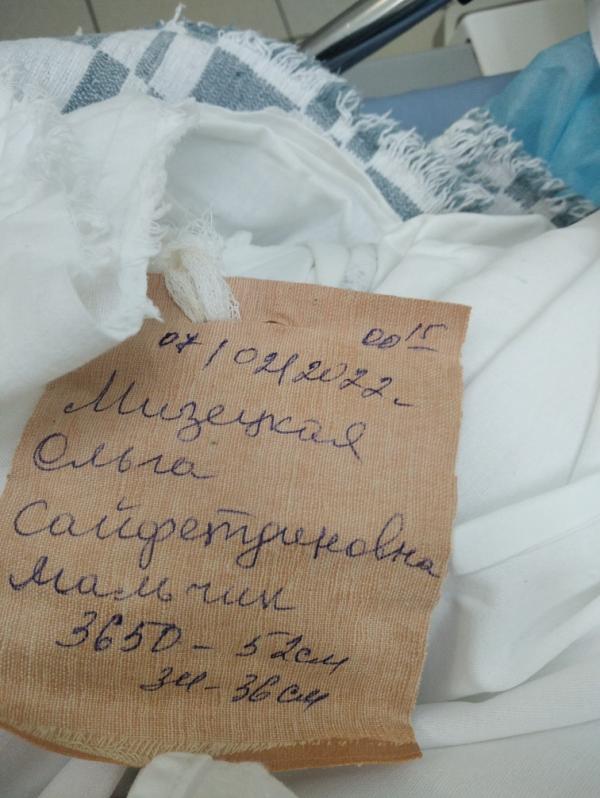 00 15
07/02/2022-
Мизецкая
Ольга
Сайфетдиновна
Мальчик
3650 - 52см
34 - 36см